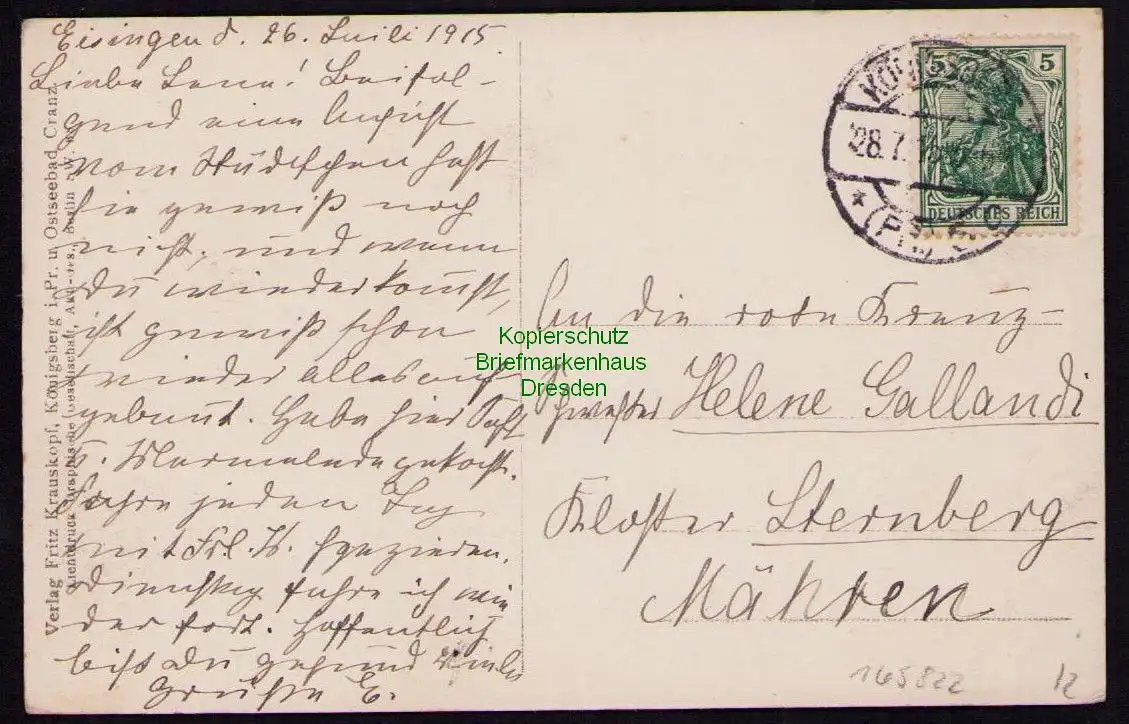 Eisingen d. 26. Juli 1915.
Liebe Lena! Beifol-
gend eine Ansicht
vom Städtchen hast
sie gewiß noch
nicht, und wenn
Du wiederkommst,
ist gewiß schon
wieder alles auf-
gebaut. Habe hier Saft
u. Marmelade gekocht.
Fahre jeden Tag
mit Frl. H. spazieren.
Dienstag fahre ich wie-
der fort. Hoffentlich
bist Du gesund viele
Grüße E.
Verlag Fritz Krauskopf, Königsberg i. Pr. u. Ostseebad Cranz.
Lichtdruck Gesellschaft, Berlin
5 5
DEUTSCHES REICH
28.7.
An die rote Kreuz-
Schwester Helene Gallandi
Kloster Sternberg
Mähren
Kopierschutz
Briefmarkenhaus
Dresden
165822
12